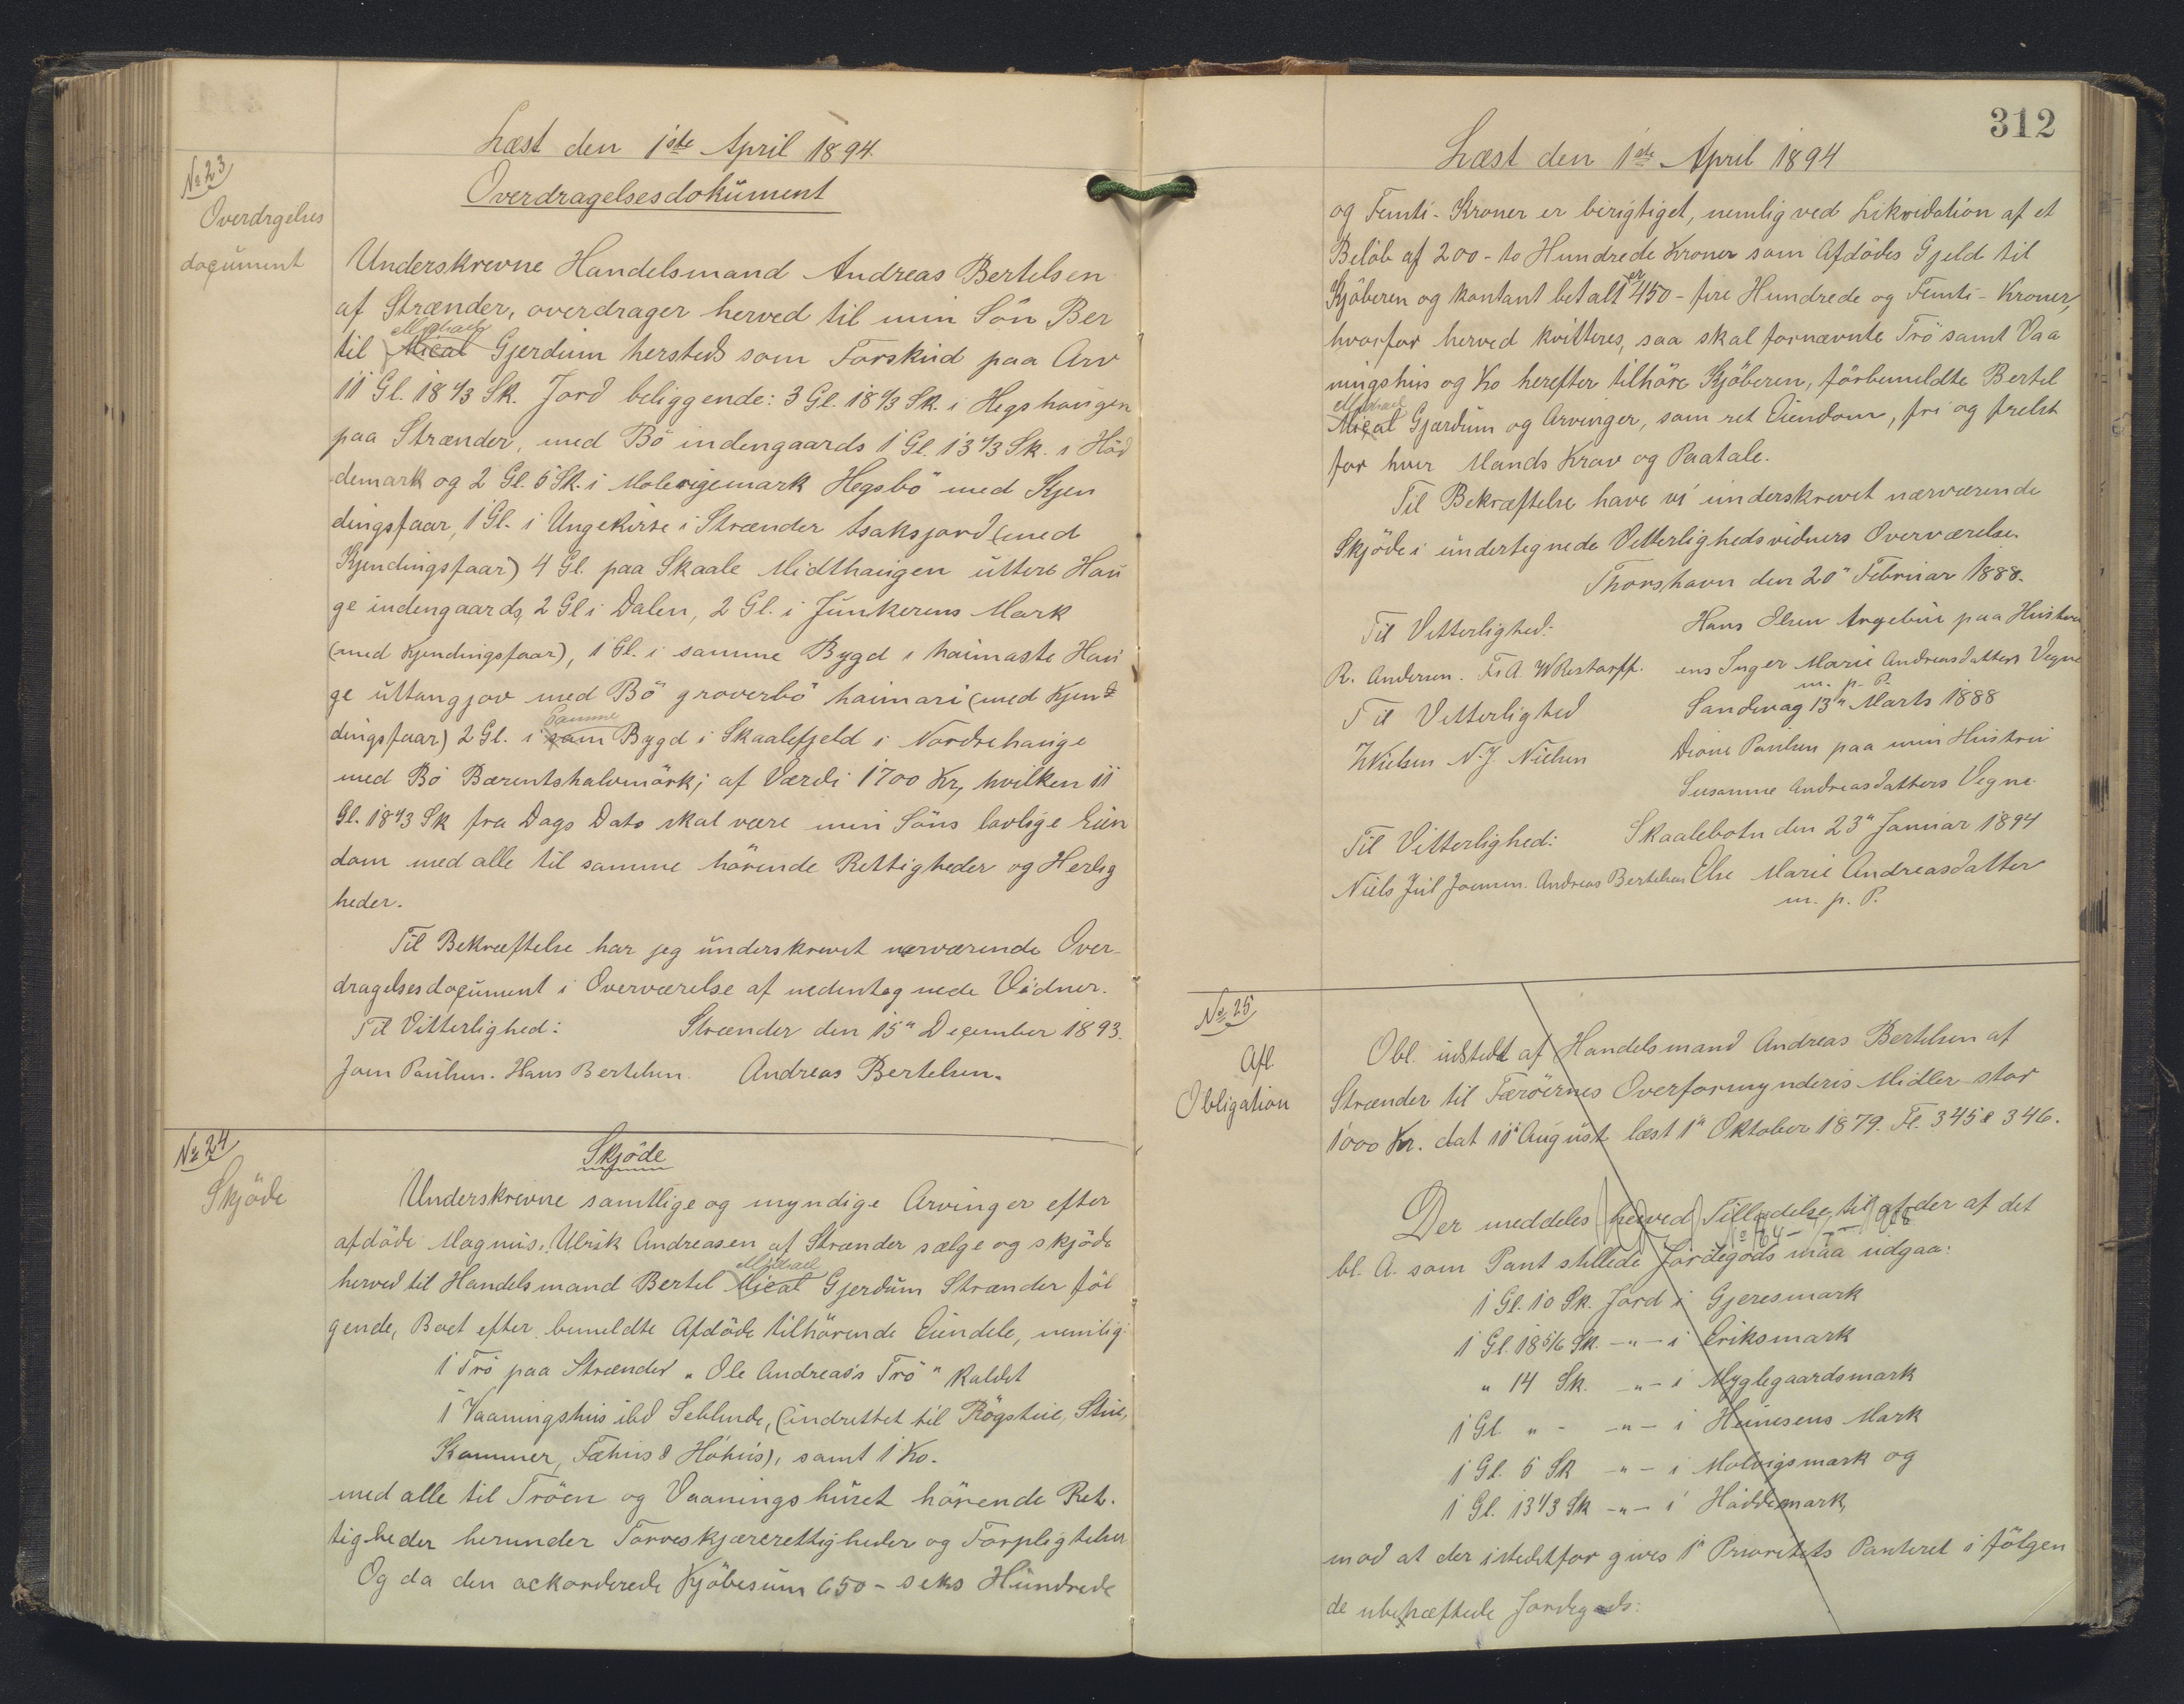 Læst den 1ste April 1894.
No 23
Overdrgelses
document
Overdragelsesdokument
Underskrevne Handelsmand Andreas Bertelsen
af Strænder, overdrager herved til min Sön Ber
til Mical Michael Gjerdum hersteds som Forskud paa Arv
11 Gl. 18 1/3 Sk. Jord beliggende: 3 Gl. 18 1/3 Sk. i Hegshaugen
paa Strænder, med Bö indengaards 1 Gl. 13 1/3 Sk. i Höd
demark og 2 Gl. 5 Sk. i Molevigemark Hegsbö med Kjen
dingsfaar, 1 Gl. i Ungekirse i Strænder Isaksjord (med
Kjendingsfaar) 4 Gl. paa Skaale Midthaugen utters Hau
ge indengaards, 2 Gl i Dalen, 2 Gl. i Junkerens Mark
(med Kjendingsfaar), 1 Gl. i samme Bygd i haimaste Hau
ge uttangjov med Bö groverbö haimari (med Kjen
dingsfaar) 2 Gl. i sam Samme Bygd i Skaalefjeld i Nordrehauge
med Bö Bærentshalvmörk; af Værdi 1700 Kr, hvilken 11
Gl. 18 1/3 Sk fra Dags Dato skal være min Söns lovlige Eien
dom med alle til samme hörende Rettigheder og Herlig
heder.
Til Bekræftelse har jeg underskrevet nærværende Over-
dragelsesdocument i Overværelse af nedentegnede Vidner.
Til Vitterlighed: Strænder den 15" December 1893.
Joen Poulsen. Hans Bertelsen. Andreas Bertelsen.
No 24
Skjöde
Skjöde
Underskrevne samtlige og myndige Arvinger efter
afdöde Magnus Ulrik Andreasen af Strænder sælge og skjöde
herved til Handelsmand Bertel Mical Michael Gjerdum Strænder föl
gende, Boet efter bemeldte Afdöde tilhörende Eiendele, nemlig:
1 Trö paa Strænder "Ole Andreas's Trö" kaldet
1 Vaaningshus ibd (indrettet til Rögstue, Stue,
Kammer, Fæhus & Höhus), samt 1 Ko.
med alle til Tröen og Vaaningshuset hörende Ret-
tigheder herunder Torveskjærerettigheder og Forpligtelser
Og da den ackorderede Kjöbesum 650 - seks Hundrede
312
Læst den 1ste April 1894
og Femti - Kroner er berigtiget, nemlig ved Likvidation af et
Belöb af 200 - to Hundrede Kroner som Afdödes Gjeld til
Kjöberen og kontant betalt er 450 - fire Hundrede og Femti - Kroner,
hvorfor herved kvitteres, saa skal fornævnte Trö samt Vaa
ningshus og Ko herefter tilhöre Kjöberen, förbemeldte Bertel
Mical Michael Gjærdum og Arvinger, som ret Eiendom, fri og frelst
for hver Mands Krav og Paatale.
Til Bekræftelse have vi underskrevet nærværende
Skjöde i undertegnede Vitterlighedsvidners Overværelse.
Thorshavn den 20" Februar 1888.
Til Vitterlighed: Hans Olsen Argebue paa Hustru
R. Andersen. Fr. A. W Restorff. ens Inger Marie Andreasdatters Vegne
m. p. P.
Til Vitterlighed Sandevag 13" Marts 1888
Nielsen N. J. Nielsen Dione Poulsen paa min Hustru
Susanne Andreasdatters Vegne.
Til Vitterlighed: Skaalebotn den 23" Januar 1894
Niels Jul Joensen. Andreas Bertelsen Else Marie Andreasdatter
m. p. P.
No 25
Afl.
Obligation
Obl. udstedt af Handelsmand Andreas Bertelsen af
Strænder til Færöernes Overformynderis Midler stor
1000 Kr. dat 11" August læst 1" Oktober 1879. Fl. 345 & 346.
Der meddeles herved Tilladelse til at der af det
bl. A. som Pant stillede Jordegods maa udgaa:
1 Gl. 10 Sk. Jord i Gjeresmark
1 Gl. 18 5/6 Sk. -"- i Eriksmark
" 14 Sk. -"- i Myglegaardsmark
1 Gl. " - -"- i Heinesens Mark
1 Gl. 5 Sk -"- i Molvigsmark og
1 Gl. 13 1/3 Sk -"- i Höddemark,
mod at der istedetfor gives 1" Prioritets Panteret i fölgen
de ubehæftede Jordegods: